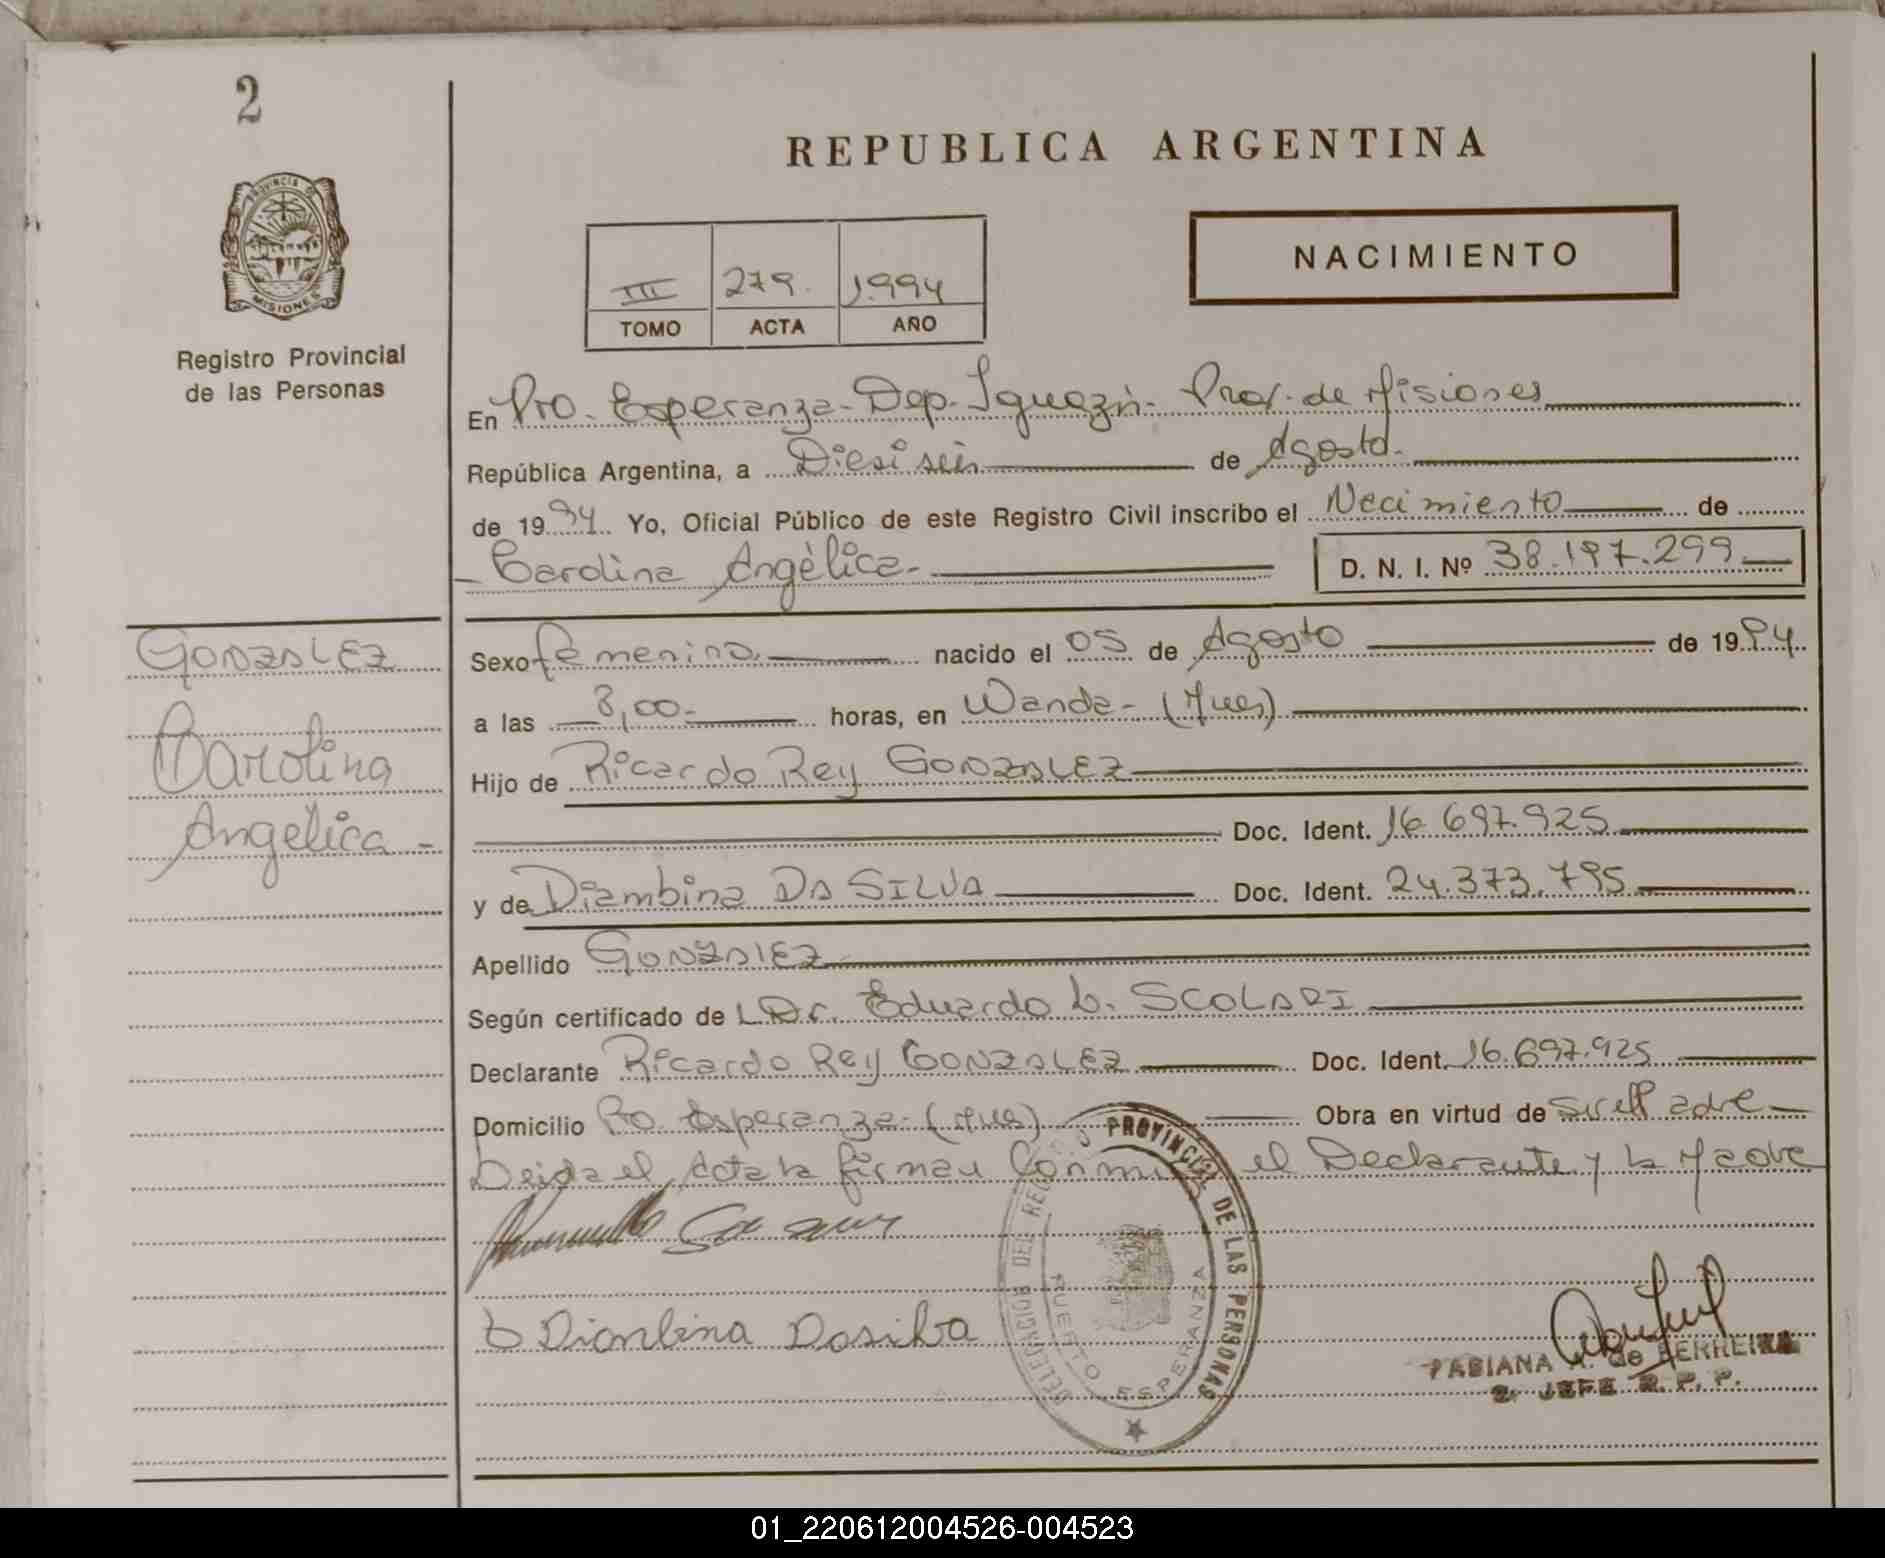 2
REPUBLICA ARGENTINA
NACIMIENTO
PROVINCIA DE
MISIONES
Registro Provincial
de las Personas
III 279. 1.994
TOMO ACTA AÑO
En Pto. Esperanza - Dep. Iguazú - Prov. de Misiones
República Argentina, a Diesiseis de Agosto.
de 1994. Yo, Oficial Público de este Registro Civil inscribo el Nacimiento de
- Carolina Angélica - D. N. I. Nº 38.197.299
GONZALEZ
Carolina
Angélica -
Sexo femenino nacido el 05 de Agosto de 1994.
a las 8,00 - horas, en Wanda - (Mnes)
Hijo de Ricardo Rey GONZALEZ
Doc. Ident. 16.697.925
y de Diambina DA SILVA Doc. Ident. 24.373.795
Apellido GONZALEZ
Según certificado de L Dr. Eduardo L. SCOLARI
Declarante Ricardo Rey GONZALEZ Doc. Ident. 16.697.925
Domicilio Pto. Esperanza - (Mnes) Obra en virtud de
Leida el Acta la firman el Declarante y la Madre
DELEGACION DEL REGISTRO PROVINCIAL DE LAS PERSONAS
PUERTO ESPERANZA
Diambina Dasilva
FABIANA A. de FERREIRA
2. JEFE R. P. P.
01_220612004526-004523